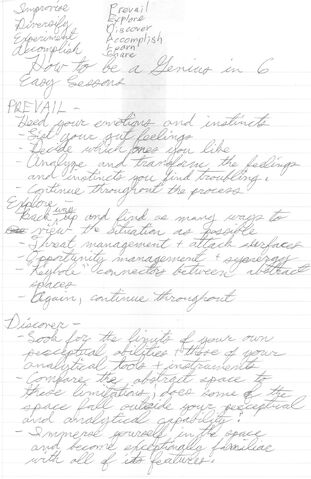 Improvise Prevail
Diversify Explore
Experiment Discover
Accomplish Accomplish
Learn!
Share
How to be a Genius in 6
Easy Sessions
PREVAIL -
- Feed your emotions and instincts
- List your gut feelings
- Decide which ones you like
- Analyze and transform the feelings
and instincts you find troubling.
- Continue throughout the process
Explore -
- Back way up and find as many ways to
view the situation as possible
- Threat management & attack surfaces
- Opportunity management & synergy
- "Keyhole" connectors between abstract
spaces
- Again, continue throughout
Discover -
- Look for the limits of your own
perceptual abilities & those of your
analytical tools & instruments
- Compare the abstract space to
these limitations; does some of the
space fall outside your perceptual
and analytical capability?
- Immerse yourself in the space
and become exceptionally familiar
with all of its features.